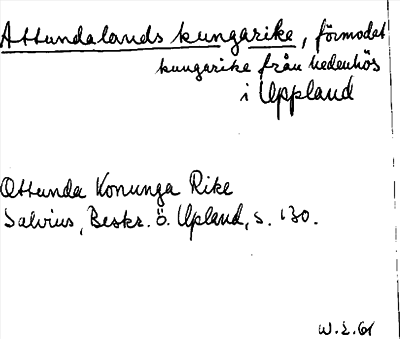 Attundalands kungarike, förmodat
kungarike från hedenhös
i Uppland
Ottunda Konunga Rike
Salvius, Beskr. ö. Upland, s. 130.
W.Z. 61